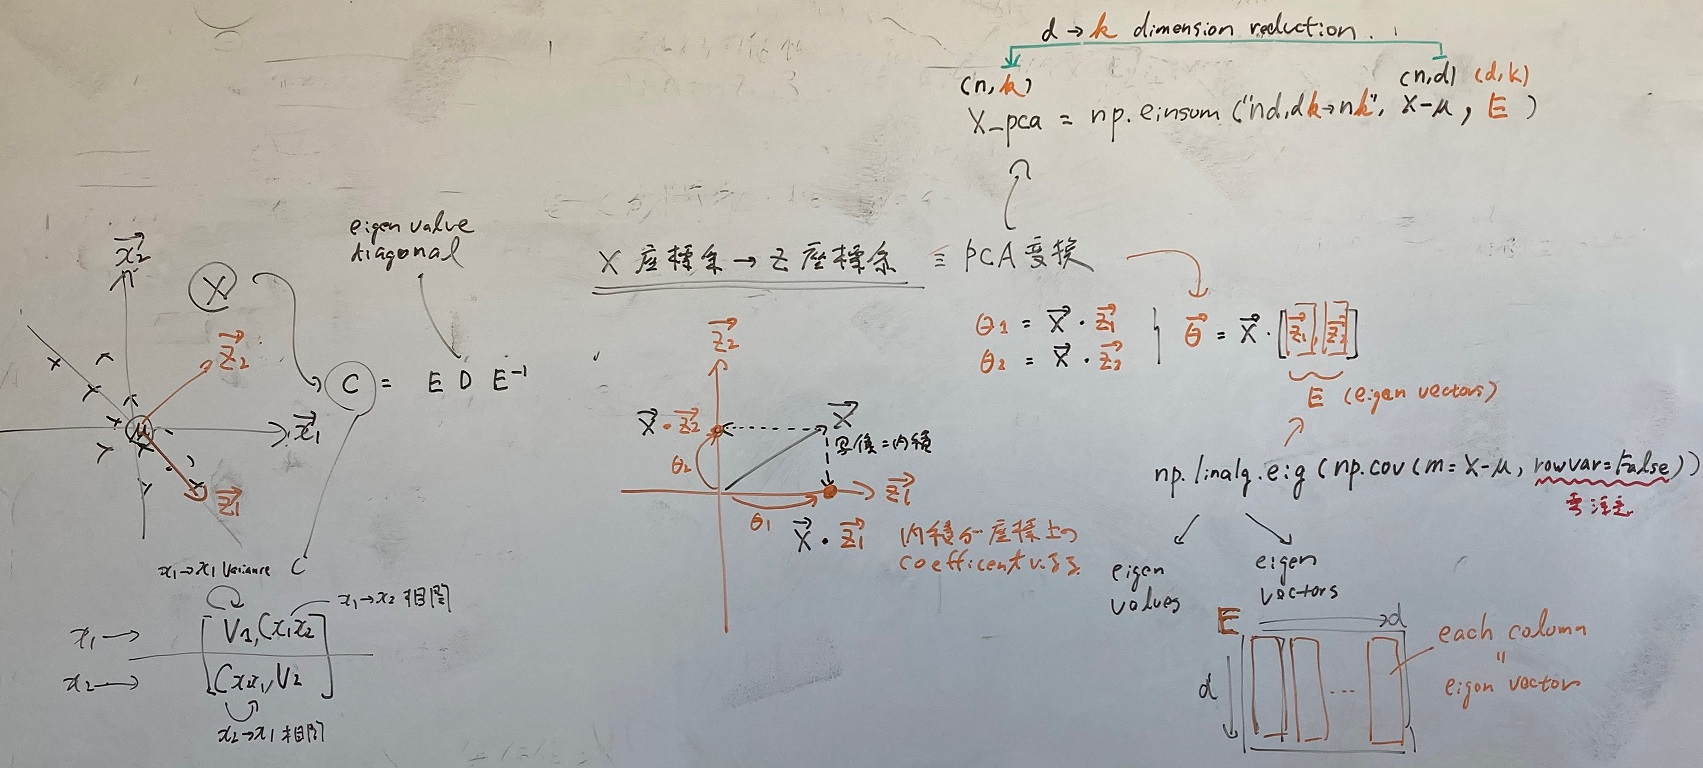 d → k dimension reduction.
(n, k)
(n,d) (d,k)
X_pca = np.einsum ("nd,dk→nk", X-μ, E)
eigen value
diagonal
x2
X
z2
C = E D E⁻¹
μ
x1
z1
x1→x1 Variance
C
x1→x2 相関
x1→
V1, Cx1x2
x2→
Cx2x1, V2
x2→x1 相関
X 座標系→Z 座標系 ≡ PCA 変換
z2
X・z2
X
写像=内積
θ2
z1
θ1
X・z1
内積が座標上の
coefficient
θ1 = X・z1
θ2 = X・z2
θ = X・[z1, z2]
E (eigen vectors)
np.linalg.eig (np.cov (m=X-μ, rowvar=False))
要注意
eigen
values
eigen
vectors
E
d
d
...
each column
"
eigen vector